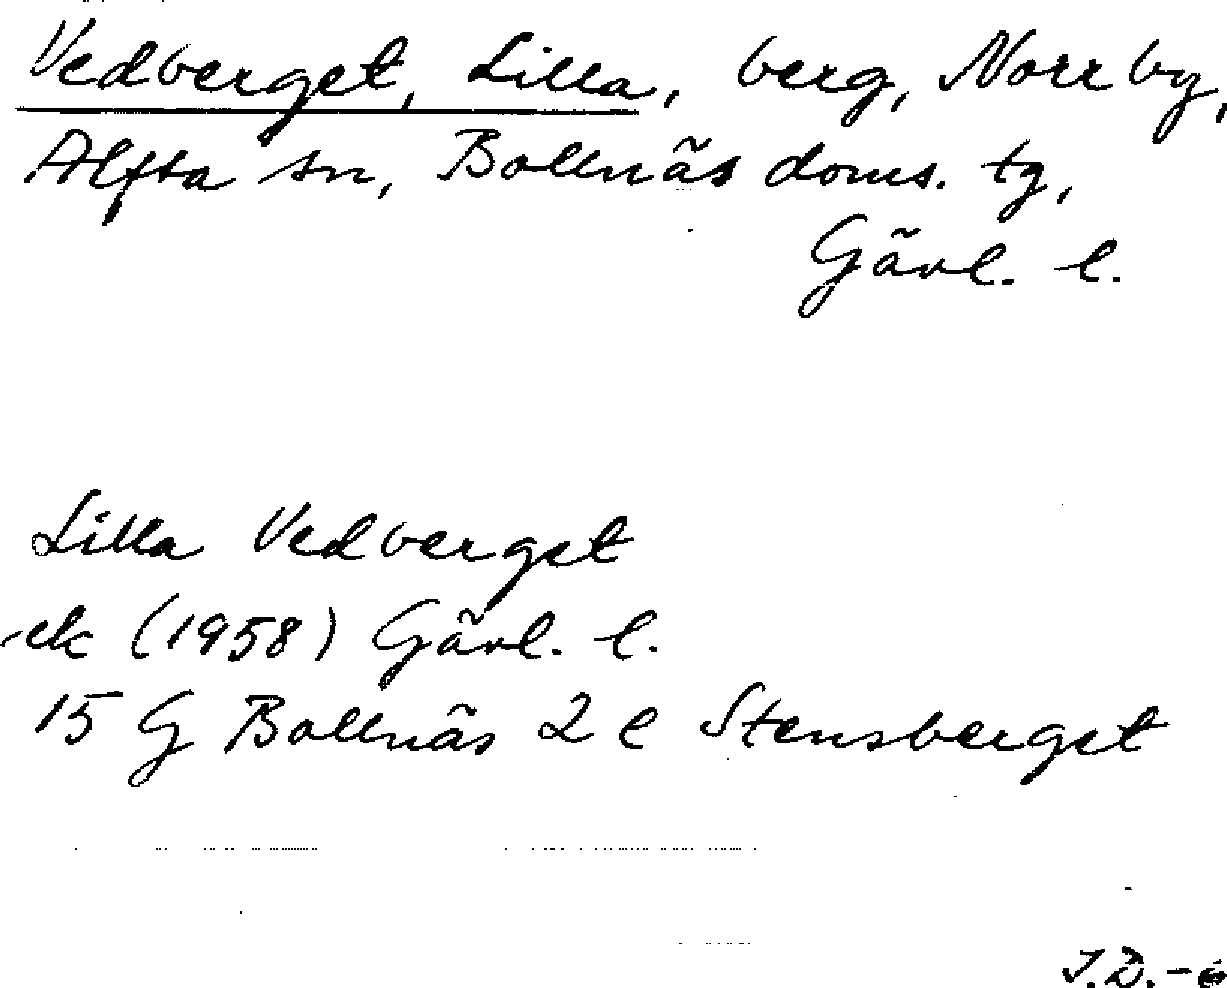 Vedberget, Lilla, berg, Norrby,
Alfta sn, Bollnäs doms. tg,
Gävl. l.
Lilla Vedberget
ek (1958) Gävl. l.
15 G Bollnäs 2 e Stensberget
J.D.-6